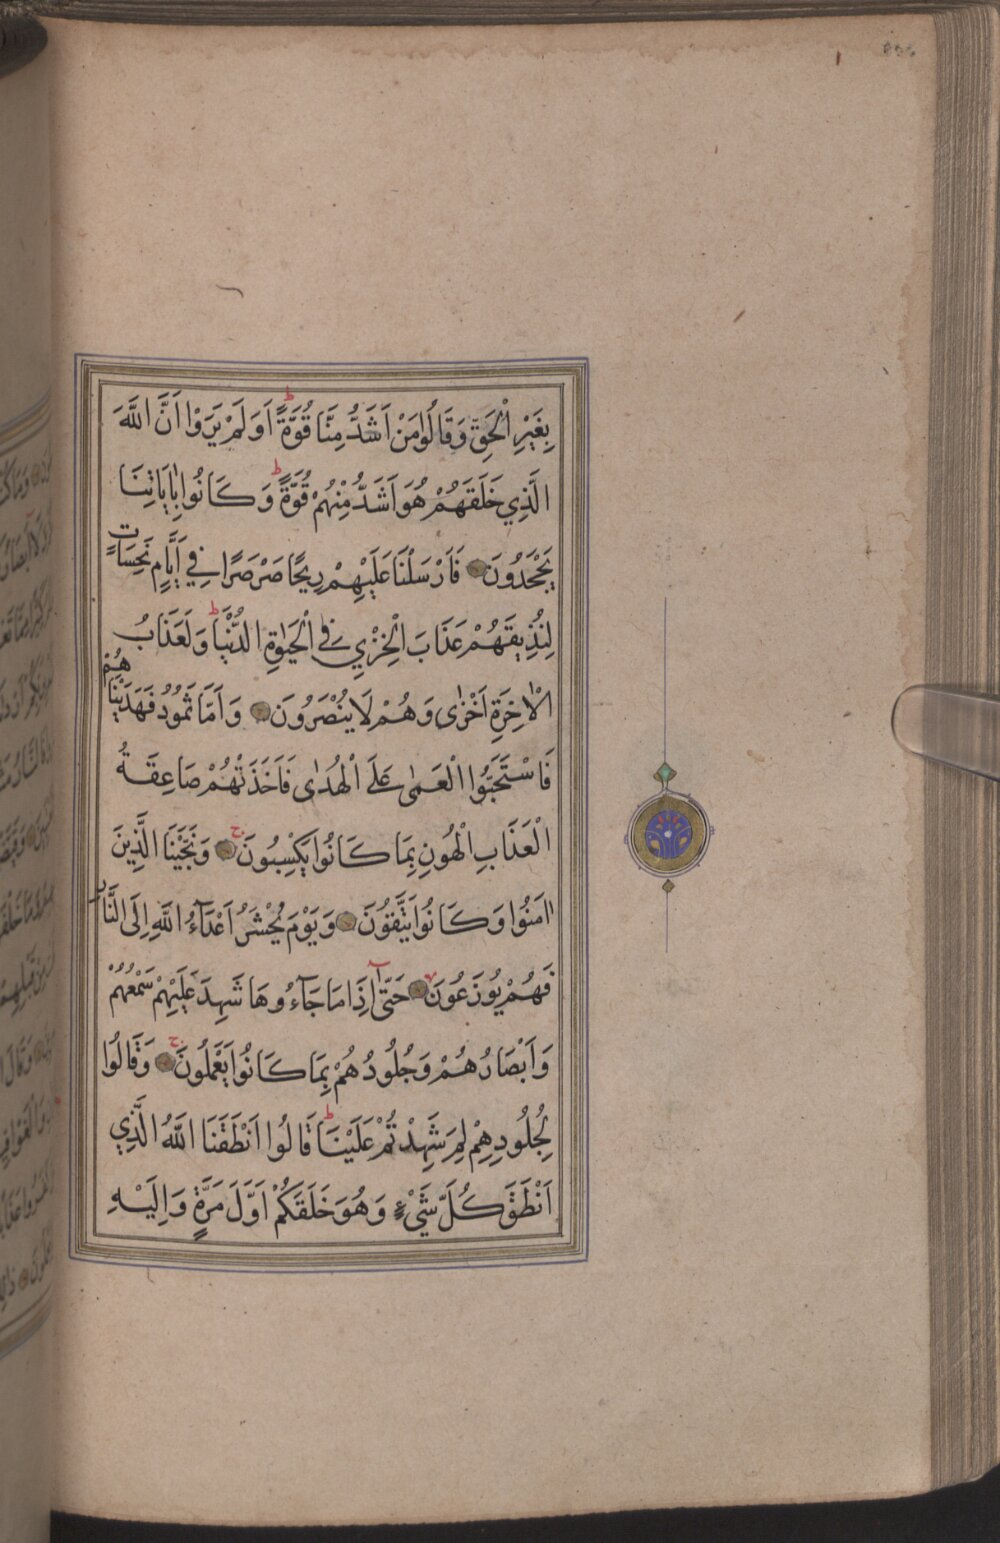 بِغَيْرِ الْحَقِّ وَقَالُوا مَنْ اَشَدُّ مِنَّا قُوَّةً ط اَوَلَمْ يَرَوْا اَنَّ اللَّهَ
الَّذِي خَلَقَهُمْ هُوَ اَشَدُّ مِنْهُمْ قُوَّةً ط وَكَانُوا بِاٰيَاتِنَا
يَجْحَدُونَ فَاَرْسَلْنَا عَلَيْهِمْ رِيحًا صَرْصَرًا فِي اَيَّامٍ نَحِسَاتٍ
لِنُذِيقَهُمْ عَذَابَ الْخِزْيِ فِي الْحَيٰوةِ الدُّنْيَا ط وَلَعَذَابُ
الْاٰخِرَةِ اَخْزٰى وَهُمْ لَا يُنْصَرُونَ وَاَمَّا ثَمُودُ فَهَدَيْنَاهُمْ
فَاسْتَحَبُّوا الْعَمٰى عَلَى الْهُدٰى فَاَخَذَتْهُمْ صَاعِقَةُ
الْعَذَابِ الْهُونِ بِمَا كَانُوا يَكْسِبُونَ ج وَنَجَّيْنَا الَّذِينَ
اٰمَنُوا وَكَانُوا يَتَّقُونَ وَيَوْمَ يُحْشَرُ اَعْدَآءُ اللَّهِ اِلَى النَّارِ
فَهُمْ يُوزَعُونَ حَتّٰٓى اِذَا مَا جَآءُوهَا شَهِدَ عَلَيْهِمْ سَمْعُهُمْ
وَاَبْصَارُهُمْ وَجُلُودُهُمْ بِمَا كَانُوا يَعْمَلُونَ ج وَقَالُوا
لِجُلُودِهِمْ لِمَ شَهِدْتُمْ عَلَيْنَا ط قَالُوا اَنْطَقَنَا اللَّهُ الَّذِي
اَنْطَقَ كُلَّ شَيْءٍ وَهُوَ خَلَقَكُمْ اَوَّلَ مَرَّةٍ وَاِلَيْهِ